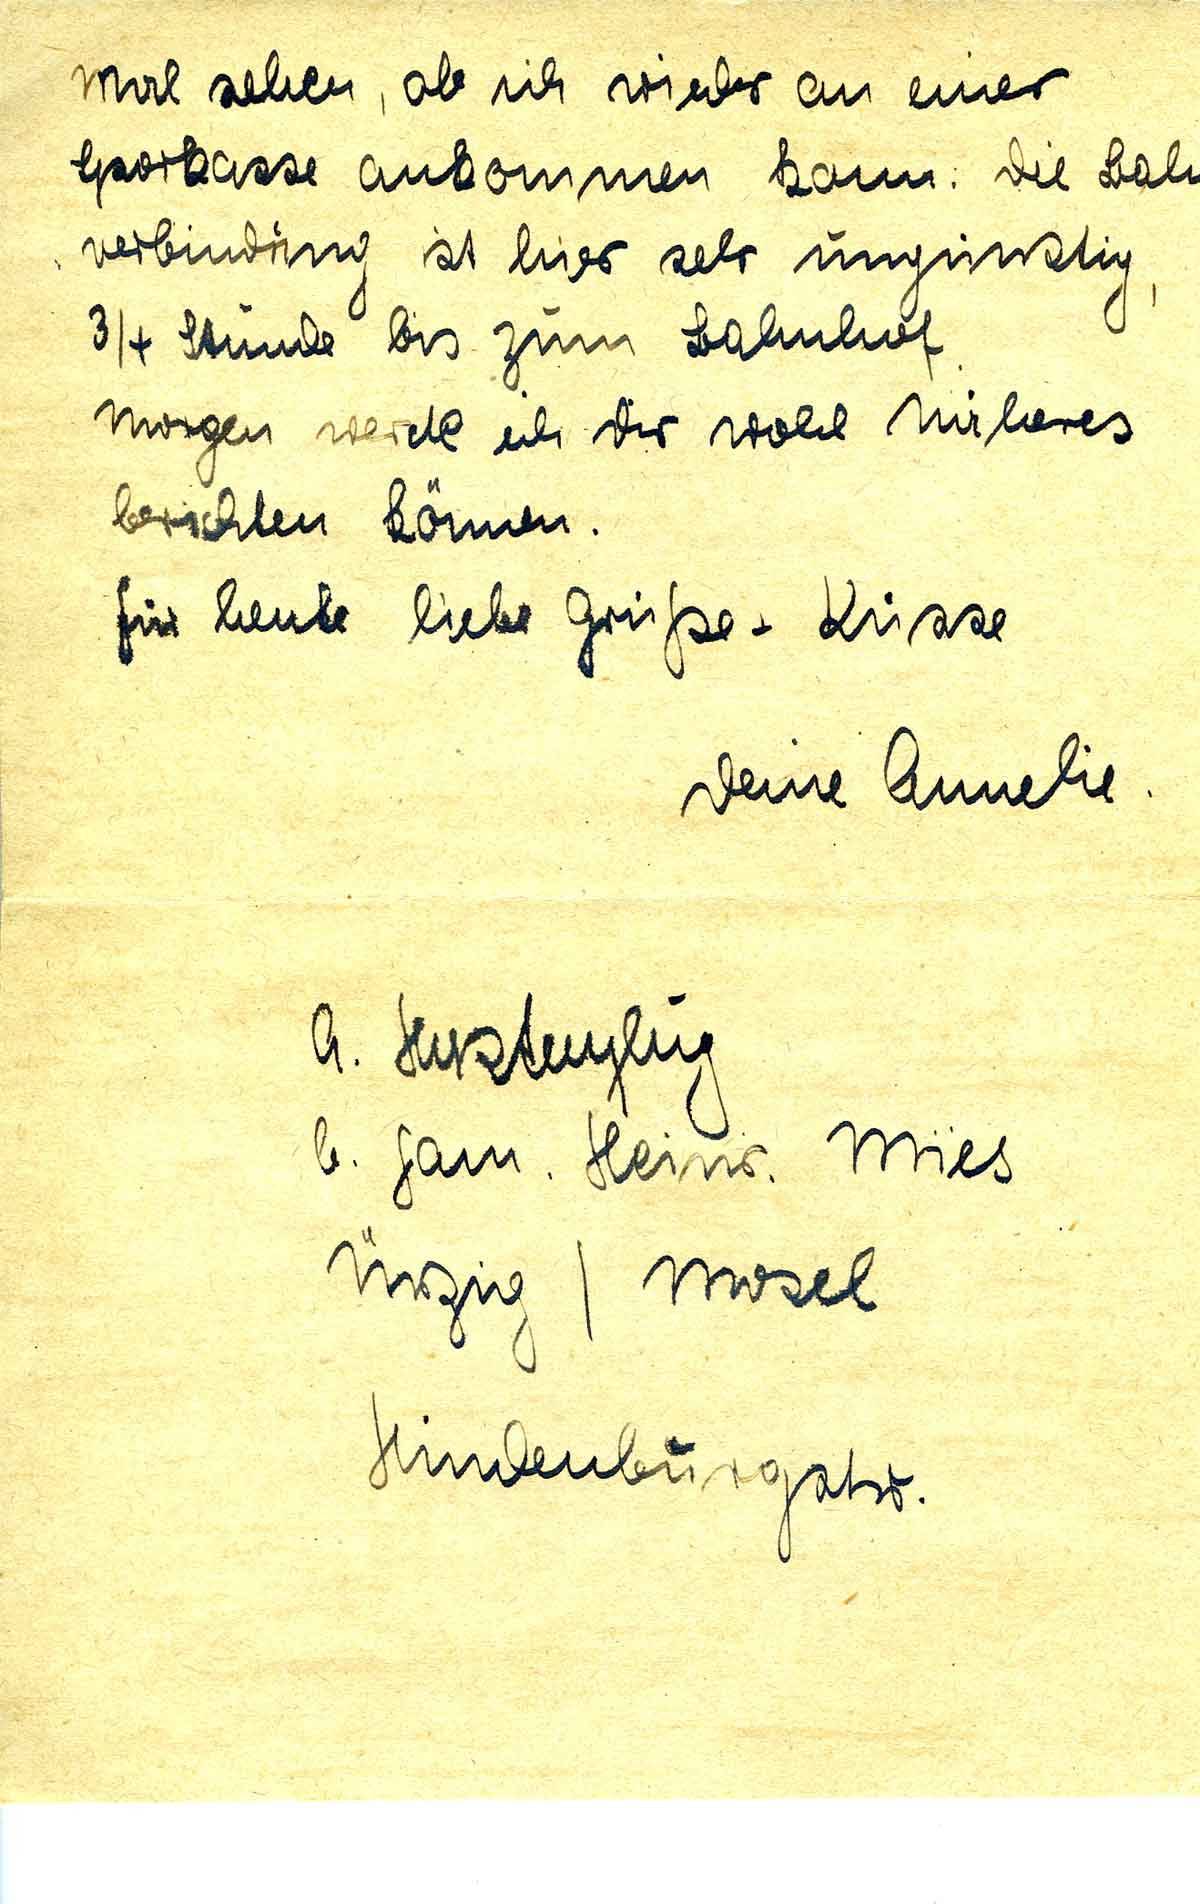 mal sehen, ob ich wieder an einer
Sparkasse ankommen kann. Die Bahn
verbindung ist hier sehr ungünstig,
3/4 Stunde bis zum Bahnhof.
Morgen werde ich Dir wohl Näheres
berichten können.
Für heute liebe Grüße + Küsse
Deine Annelie.
A. Hustenpflug
b. Fam. Heinr. Mies
Ürzig / Mosel
Hindenburgstr.